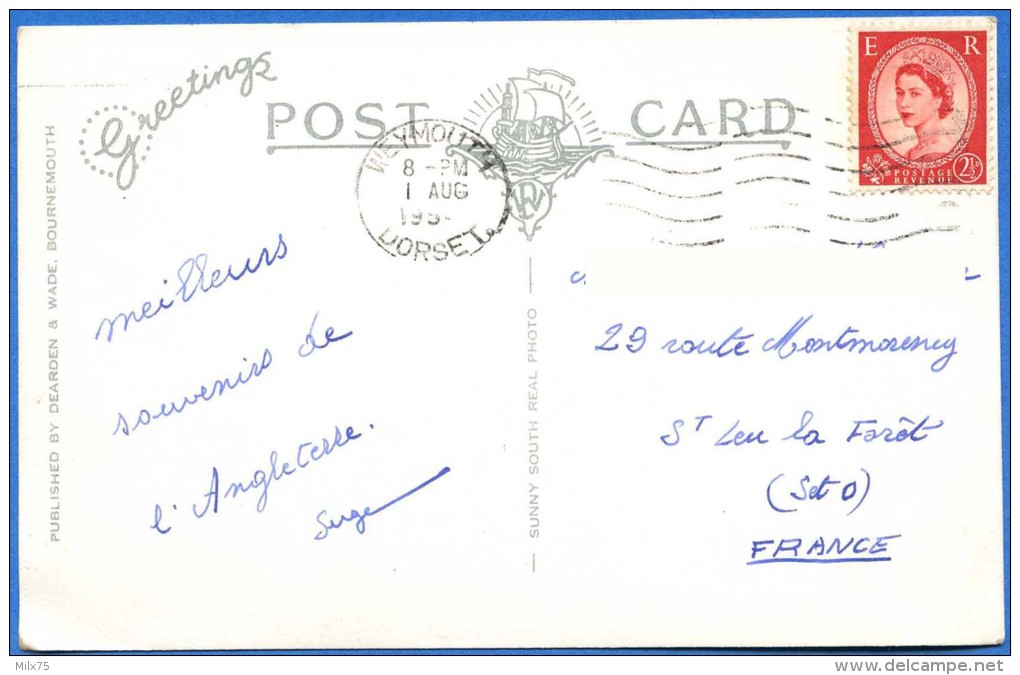 Greetings
POST CARD
WEYMOUTH
8 - PM
1 AUG
195-
DORSET.
E R
POSTAGE
REVENUE
2½
PUBLISHED BY DEARDEN & WADE, BOURNEMOUTH
meilleurs
souvenirs de
l'Angleterre.
Serge
SUNNY SOUTH REAL PHOTO
29 route Montmorency
ST Leu la Forêt
(S et O)
FRANCE
Milx75
www.delcampe.net